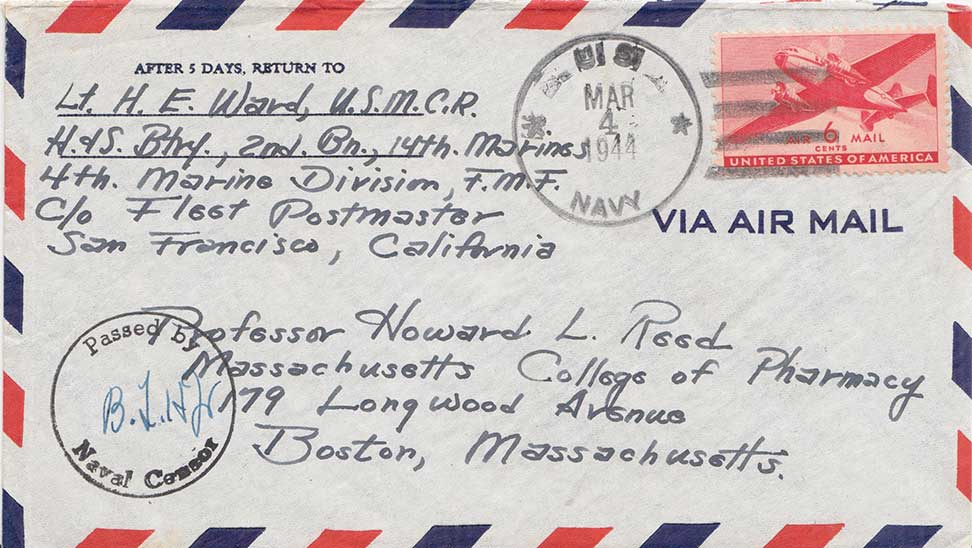 AFTER 5 DAYS, RETURN TO
Lt. H. E. Ward, U.S.M.C.R.
H.&S. Btry., 2nd. Bn., 14th. Marines
4th. Marine Division, F.M.F.
c/o Fleet Postmaster
San Francisco, California
U. S.
MAR
4
1944
NAVY
AIR 6 MAIL
CENTS
UNITED STATES OF AMERICA
VIA AIR MAIL
Professor Howard L. Reed
Massachusetts College of Pharmacy
179 Longwood Avenue
Boston, Massachusetts.
Passed by
Naval Censor